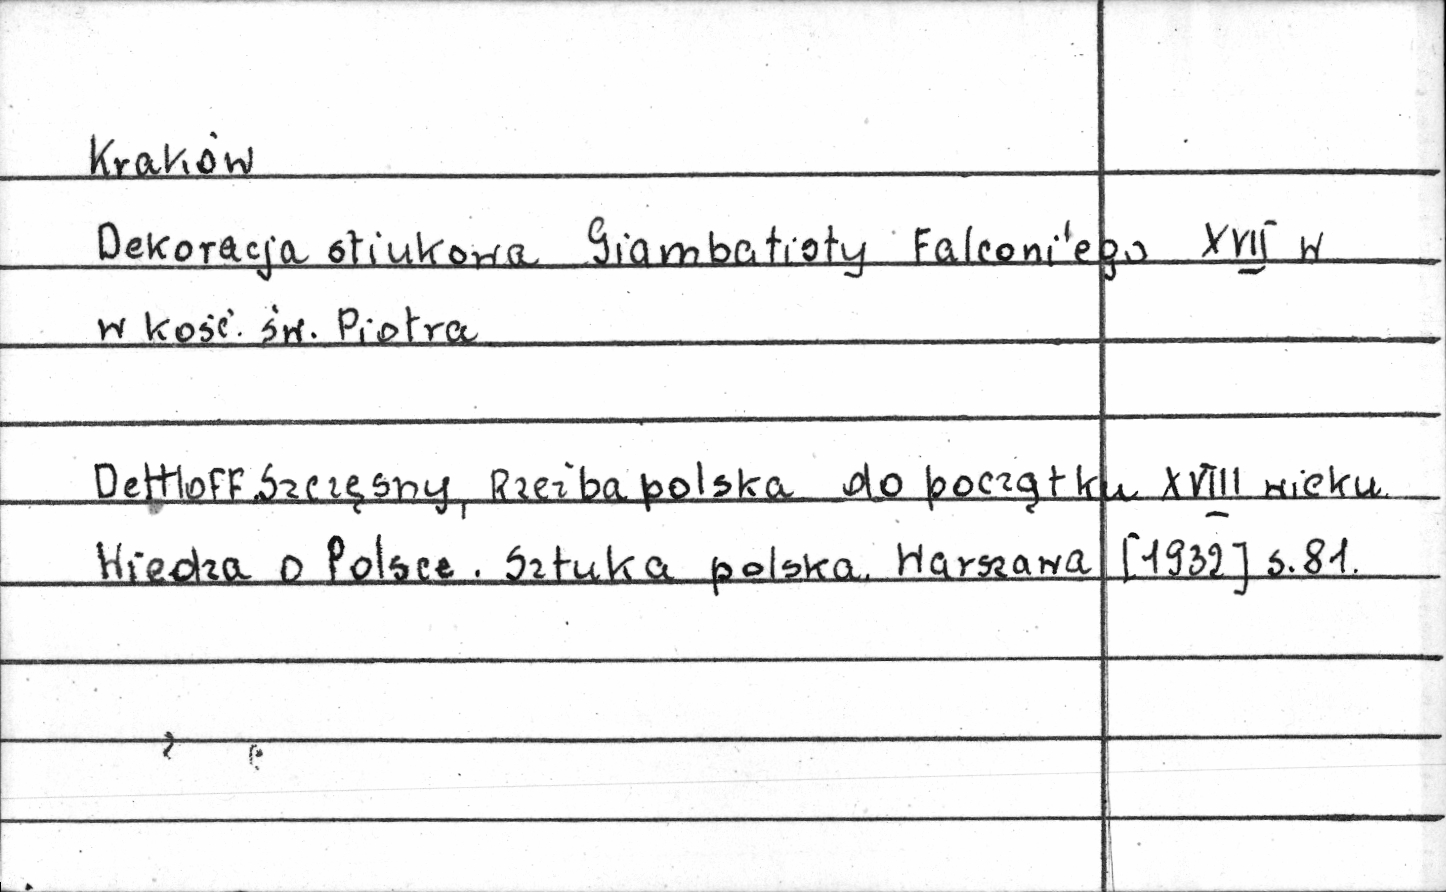 Kraków
Dekoracja stiukowa Giambatisty Falconi'ego XVII w
w kość. św. Piotra
Dettloff Szczęsny, Rzeźba polska do początku XVIII wieku.
Wiedza o Polsce. Sztuka polska. Warszawa [1932] s. 81.